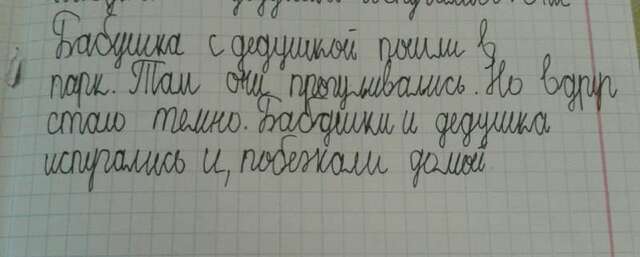 Бабушка с дедушкой пошли в
парк. Там они прогуливались. Но вдруг
стало темно. Бабушки и дедушка
испугались и, побежали домой